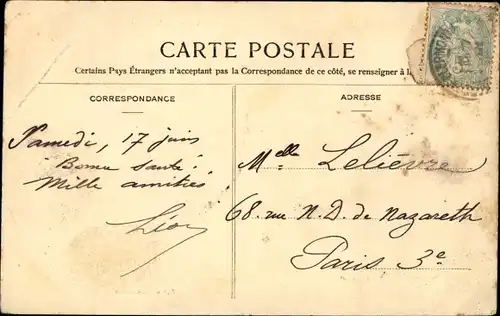 CARTE POSTALE
Certains Pays Étrangers n'acceptant pas la Correspondance de ce côté, se renseigner à
CORRESPONDANCE
ADRESSE
Samedi, 17 juin
Bonne santé!
Mille amitiés
Léon
Melle Lelièvre
68 rue N.D. de Nazareth
Paris 3e